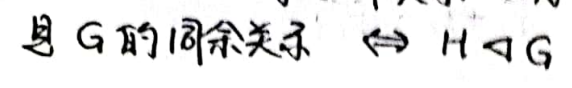 是 G 的同余关系 ⇔ H ◁ G